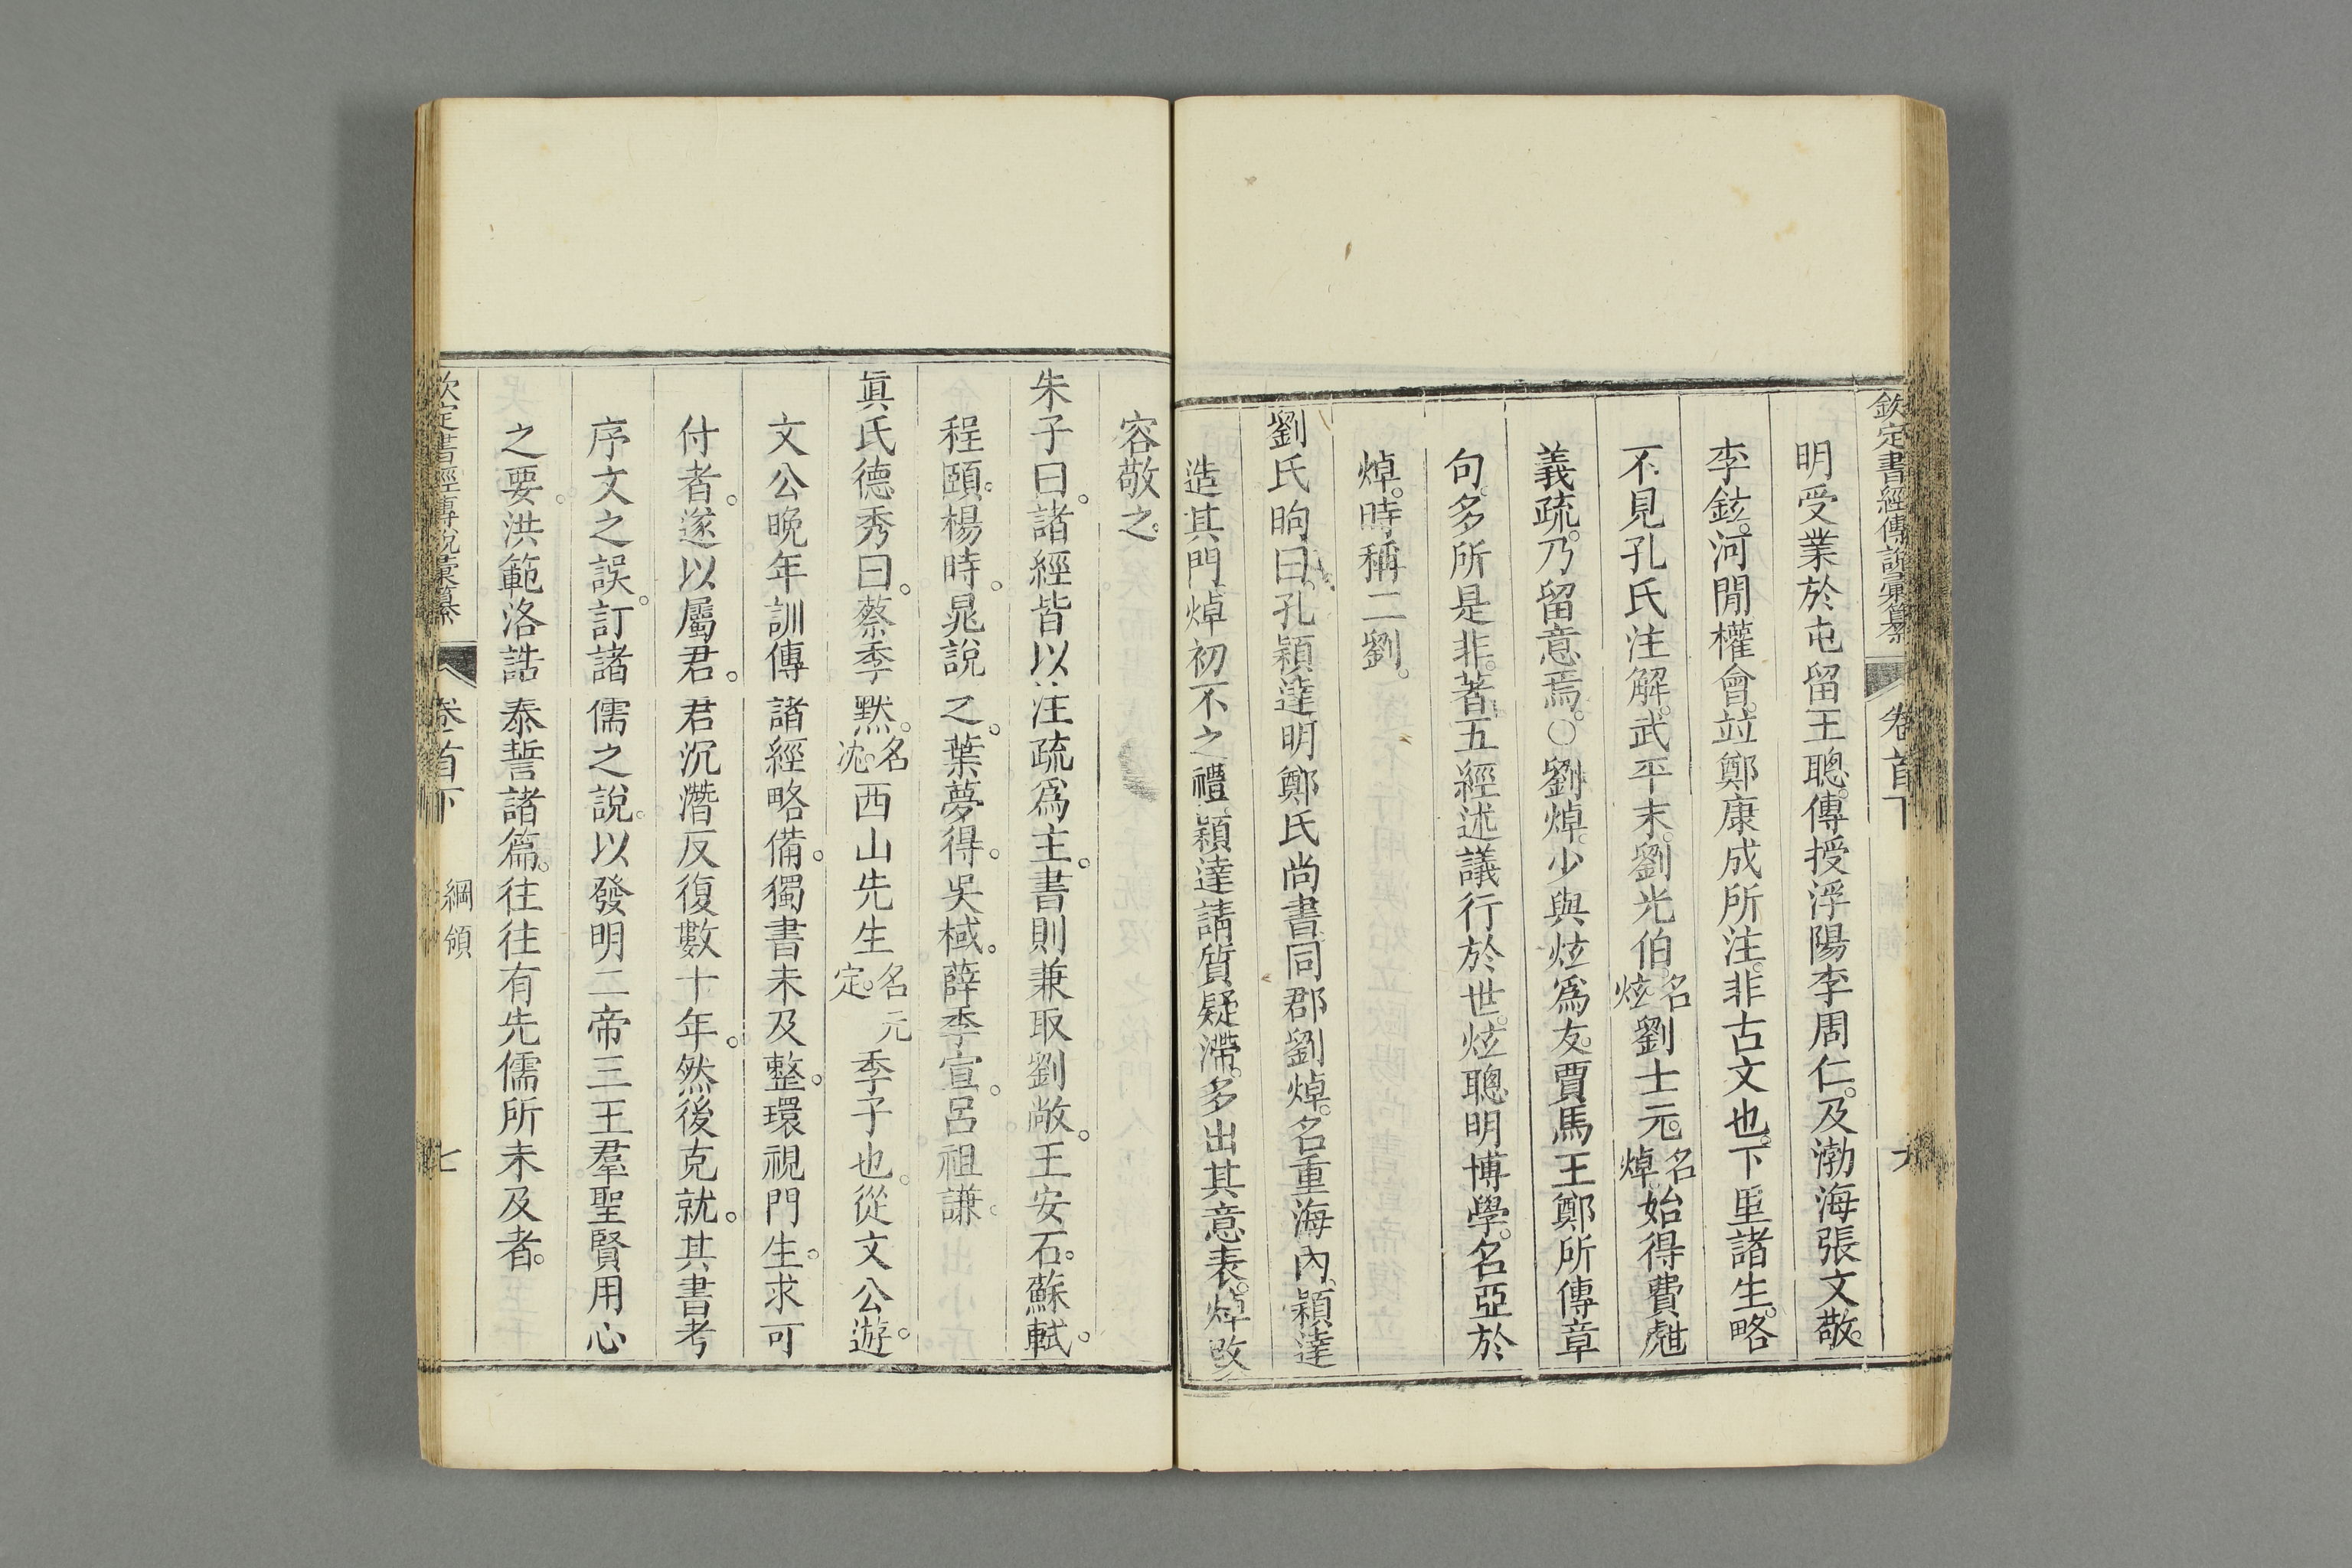 欽定書經傳說彙纂 卷首下
明受業於屯留王聰。傳授浮陽李周仁。及渤海張文敬。
李鉉。河閒權會。竝鄭康成所注。非古文也。下里諸生。略
不見孔氏注解。武平末。劉光伯名炫。劉士元名焯。始得費甝
義疏。乃留意焉。○劉焯。少與炫爲友。賈馬王鄭所傳章
句。多所是非。著五經述議行於世。炫聰明博學。名亞於
焯。時稱二劉。
劉氏昫曰。孔穎達明鄭氏尚書同郡劉焯。名重海內。穎達
造其門焯初不之禮。穎達請質疑滯。多出其意表。焯改
容敬之。
朱子曰。諸經皆以注疏爲主。書則兼取劉敞。王安石。蘇軾。
程頤。楊時。晁說之。葉夢得。吳棫。薛季宣。呂祖謙。
眞氏德秀曰。蔡季默。名沈。西山先生名元定。季子也。從文公遊。
文公晚年訓傳諸經略備。獨書未及整。環視門生。求可
付者。遂以屬君。君沉潛反復數十年。然後克就。其書考
序文之誤。訂諸儒之說。以發明二帝三王羣聖賢用心
之要。洪範洛誥泰誓諸篇。往往有先儒所未及者。
欽定書經傳說彙纂 卷首下 綱領 七